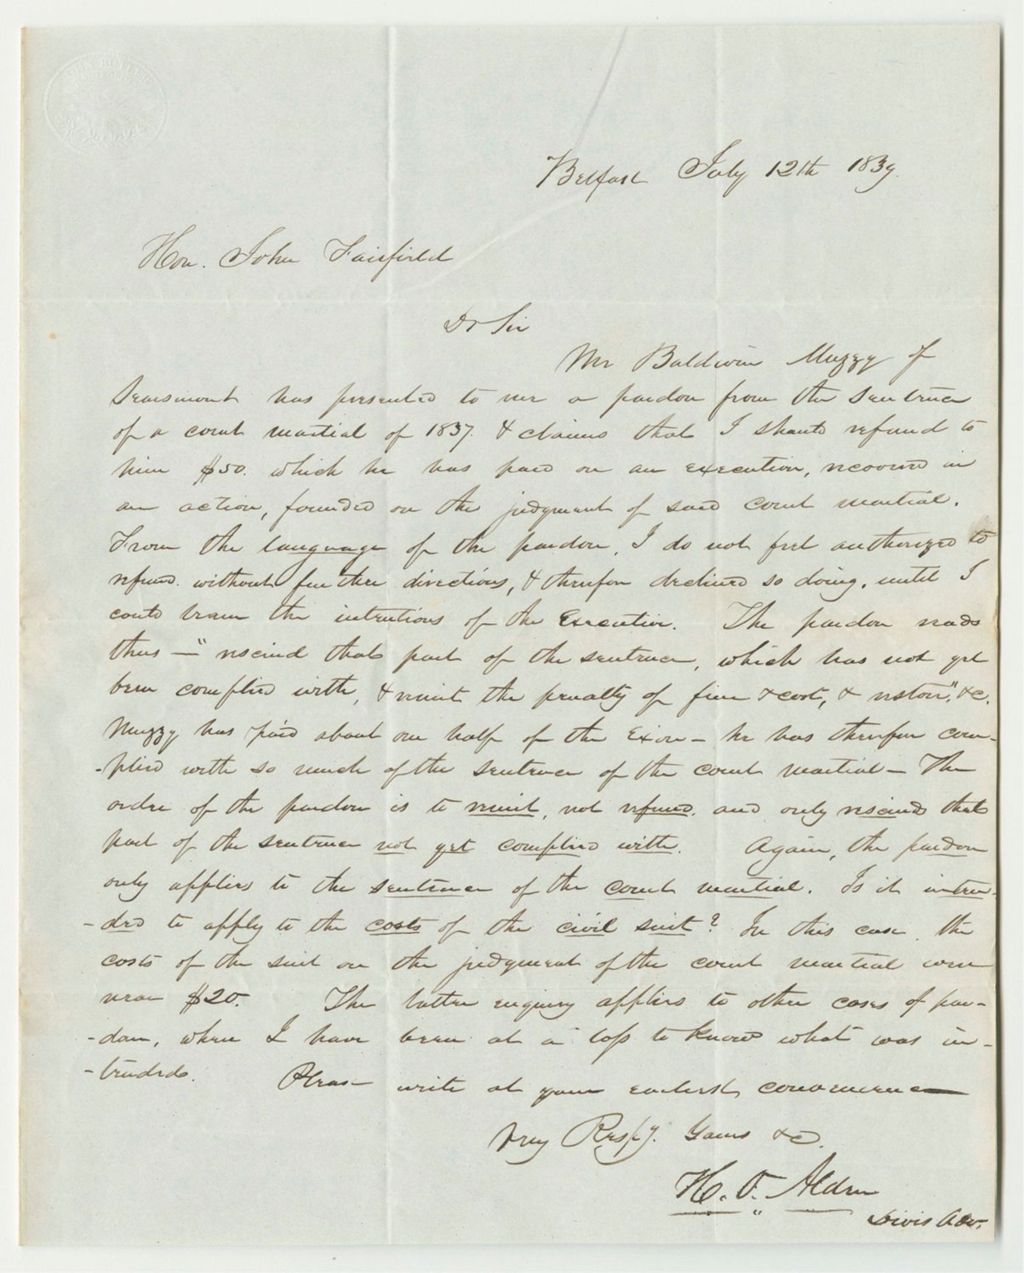 Belfast July 12th 1839.
Hon. John Fairfield
Dr Sir
Mr Baldwin Muzzy of
Searsmont has presented to me a pardon from the sentence
of a court martial of 1837. & claims that I should refund to
him $50. which he has paid on an execution, recovered in
an action, founded on the judgment of said court martial.
From the language of the pardon, I do not feel authorized to
refund without further directions, & therefore declined so doing, until I
could learn the intentions of the Executive. The pardon reads
thus — "rescind that part of the sentence, which has not yet
been complied with, & remit the penalty of fine & costs, & restore", &c.
Muzzy has paid about one half of the Exon — he has therefore com-
-plied with so much of the sentence of the court martial — The
order of the pardon is to remit, not refund, and only rescinds that
part of the sentence not yet complied with. Again, the pardon
only applies to the sentence of the court martial. Is it inten-
-ded to apply to the costs of the civil suit? In this case, the
costs of the suit on the judgment of the court martial were
near $20. The latter enquiry applies to other cases of par-
-don, where I have been at a loss to know what was in-
-tended. Please write at your earliest convenience
Very Respy. Yours &c.
H. O. Alden
Divis Adv.